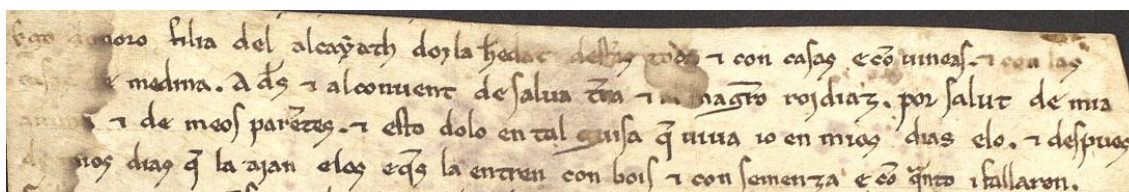 filia del alcayath do&la hedat & con casas e cō vineas. & con las
medina. A ds & al convent de salua t̄ra & magr̄o roidiaz. por salut de mia
& de meos parētes. & esto dolo en tal guisa q̄ viva io en mios dias elo. & despues
mos dias q̄ la aian elos e q̄s la entren con bois & con semenza e cō q̄nto i fallaron.